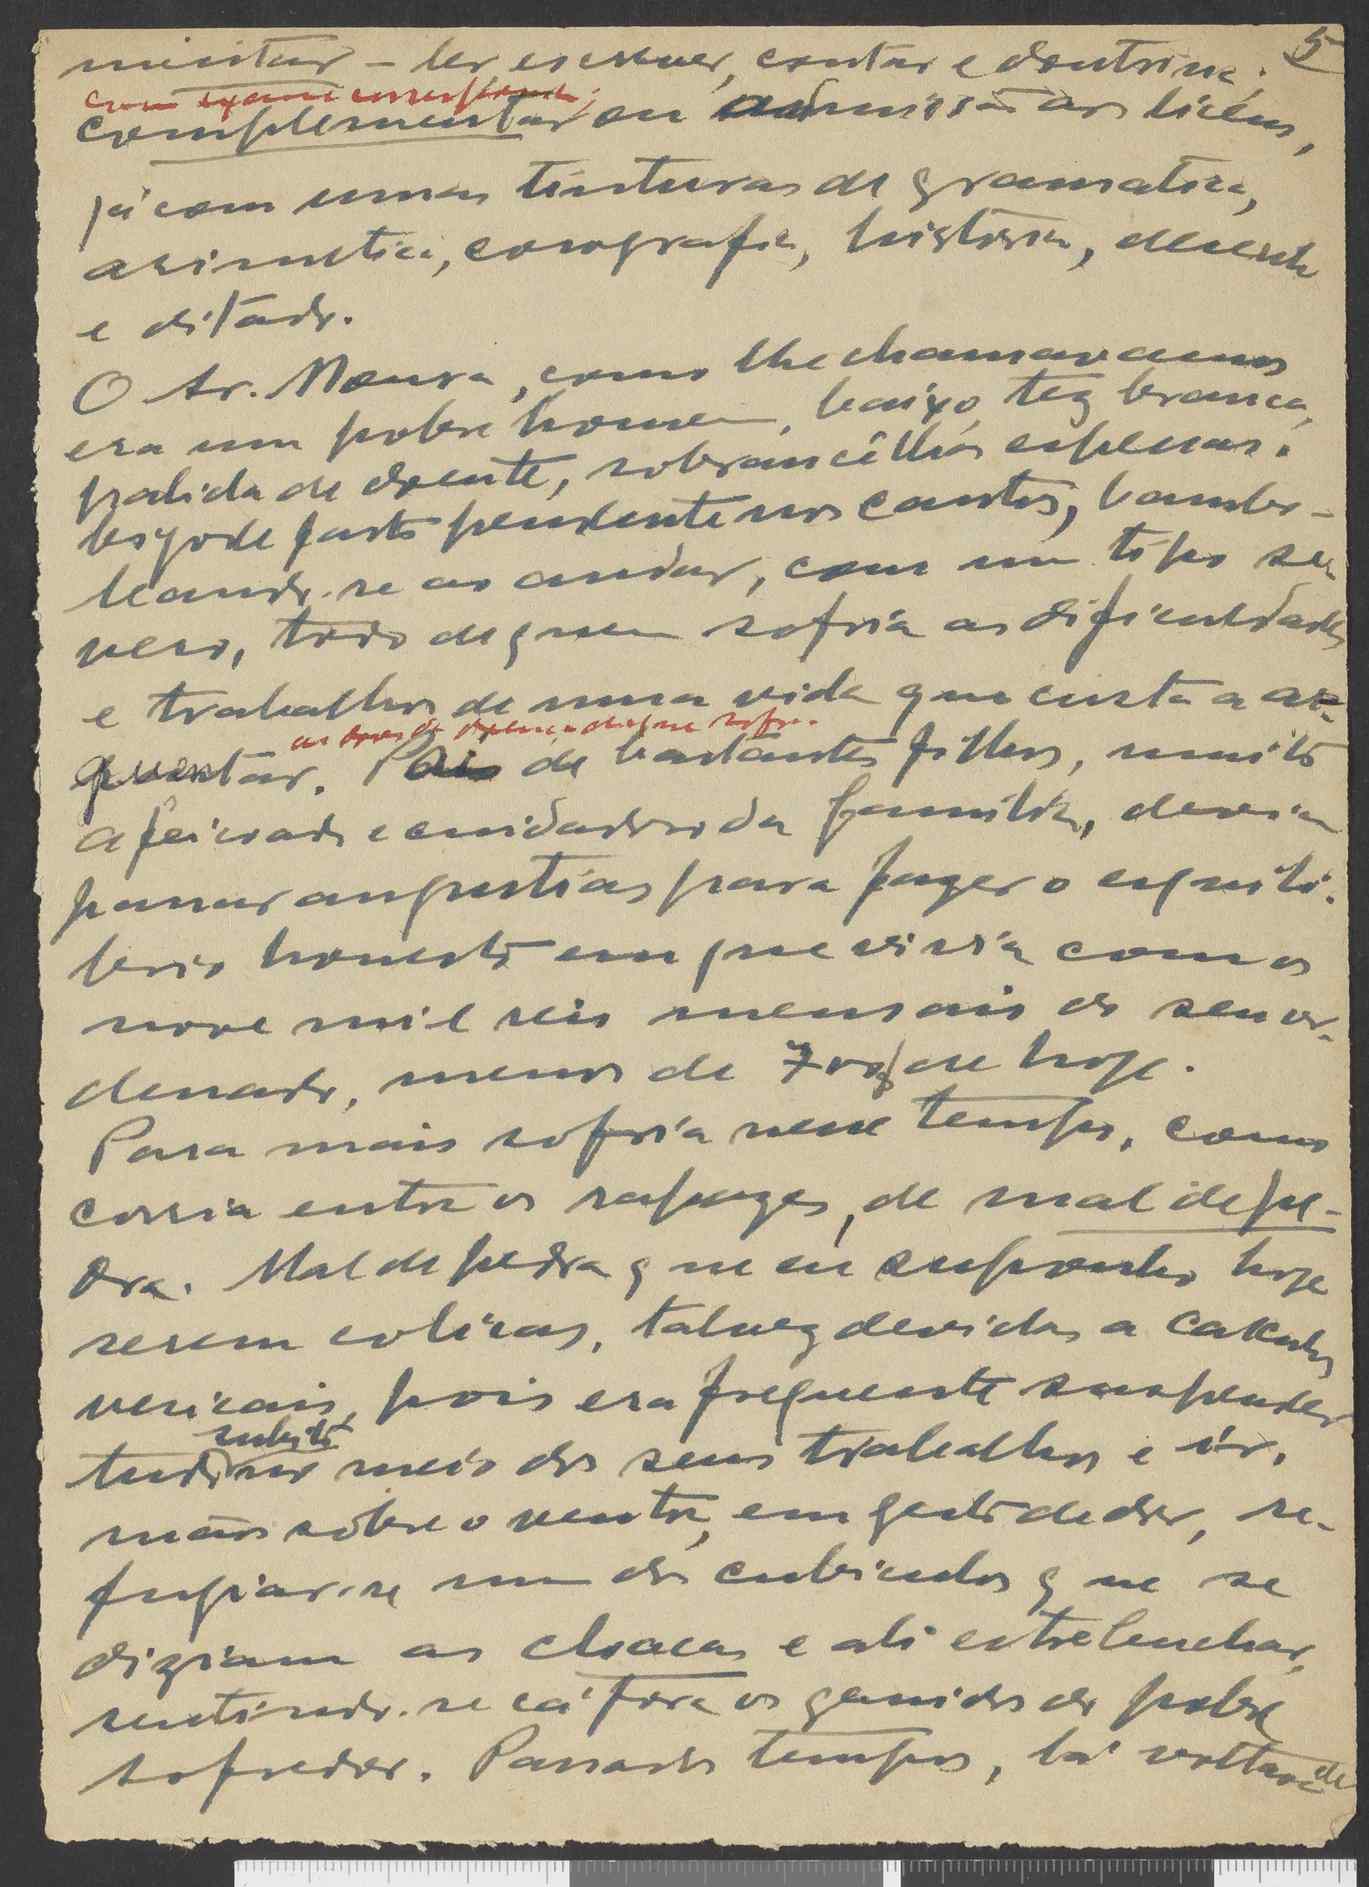 5
mentar – ler escrever, contar e doutrina;
com exame correspondente;
complementar ou admissão aos liceus,
já com umas tinturas de gramatica,
arimetica, corografia, historia, desenho
e ditado.
O Sr. Moura, como lhe chamavamos
era um pobre homem, baixo, tez branca,
palida de doente, sobrancêlhas espessas,
bigode farto pendente nos cantos, bambo-
leando-se ao andar, com um tipo se-
vero, todo de quem sofria as dificuldades
e trabalhos de uma vida que custa a ar-
as dores da doença de que sofria.
quentar. Pai de bastantes filhos, muito
afeiçoado e cuidadoso da familia, devia
passar angustias para fazer o equili-
brio honesto em que vivia com os
nove mil reis mensais do seu or-
denado, menos de 700$ de hoje.
Para mais sofria nesse tempo, como
corria entre os rapazes, de mal de pe-
dra. Mal de pedra que eu suponho hoje
serem colicas, talvez devidas a calculos
vesicais, pois era frequente suspender
subito
tudo no meio dos seus trabalhos e ir,
mãos sobre o ventre, em gesto de dor, re-
fugiar-se num dos cubiculos que se
diziam as cloacas e ali estrebuchar,
sentindo-se cá fora os ganidos do pobre
sofredor. Passado tempos, lá voltava de